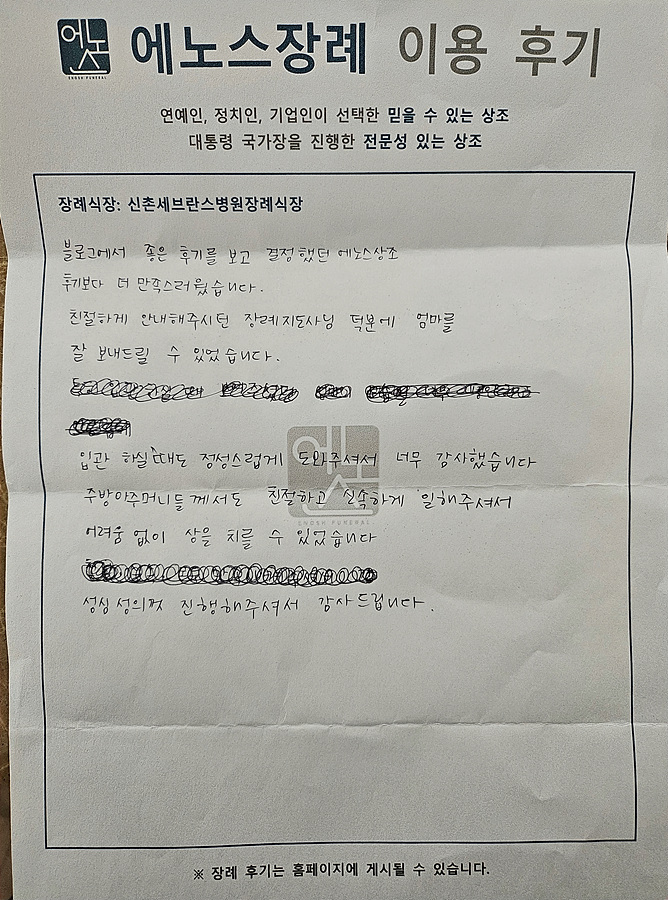 에노스
ENOSH FUNERAL
에노스장례 이용 후기
연예인, 정치인, 기업인이 선택한 믿을 수 있는 상조
대통령 국가장을 진행한 전문성 있는 상조
장례식장: 신촌세브란스병원장례식장
블로그에서 좋은 후기를 보고 결정했던 에노스상조
후기보다 더 만족스러웠습니다.
친절하게 안내해주시던 장례지도사님 덕분에 엄마를
잘 보내드릴 수 있었습니다.
입관 하실때도 정성스럽게 도와주셔서 너무 감사했습니다
주방아주머니들께서도 친절하고 신속하게 일해주셔서
어려움 없이 상을 치를 수 있었습니다
성심성의껏 진행해주셔서 감사드립니다.
에노스
ENOSH FUNERAL
※ 장례 후기는 홈페이지에 게시될 수 있습니다.